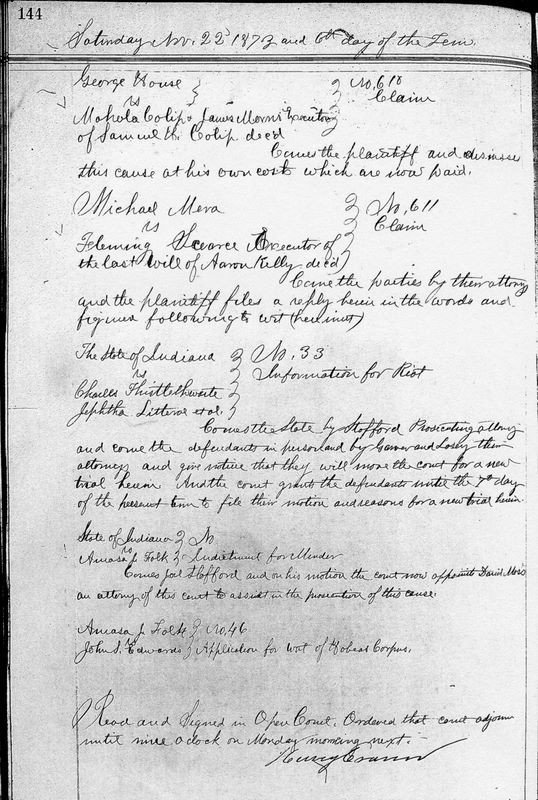 144
Saturday Nov. 22d 1873 and 6th day of the Term
George House
vs
No. 610
Claim
Mahala Colip & James Morris Executors
of Samuel H. Colip decd
Comes the plaintiff and dismisses
this cause at his own costs which are now paid.
Michael Mera
vs
No. 611
Claim
Fleming Scearce Executor of
the last Will of Aaron Kelly decd
Come the parties by their attorny
and the plaintiff files a reply herein in the words and
figures following to wit (here insert)
The State of Indiana
vs
No. 33
Information for Riot
Charles Thistlethwaite
Jephtha Litteral et al.
Comes the State by Stafford Prosecuting attorny
and come the defendants in person and by Garver and their
attorneys and give notice that they will move the court for a new
trial herein. And the court grants the defendants until the day
of the present term to file their motion and reasons for a new trial herein
State of Indiana No
vs
Amasa J. Folk Indictment for Murder
Comes Joel Stafford and on his motion the court now appoints David Moss
an attorny of this court to assist in the prosecution of this cause.
Amasa J. Folk No. 46
vs
John S. Edwards Application for writ of Habeas Corpus.
Read and Signed in Open Court. Ordered that court adjourn
until nine o clock on Monday morning next.